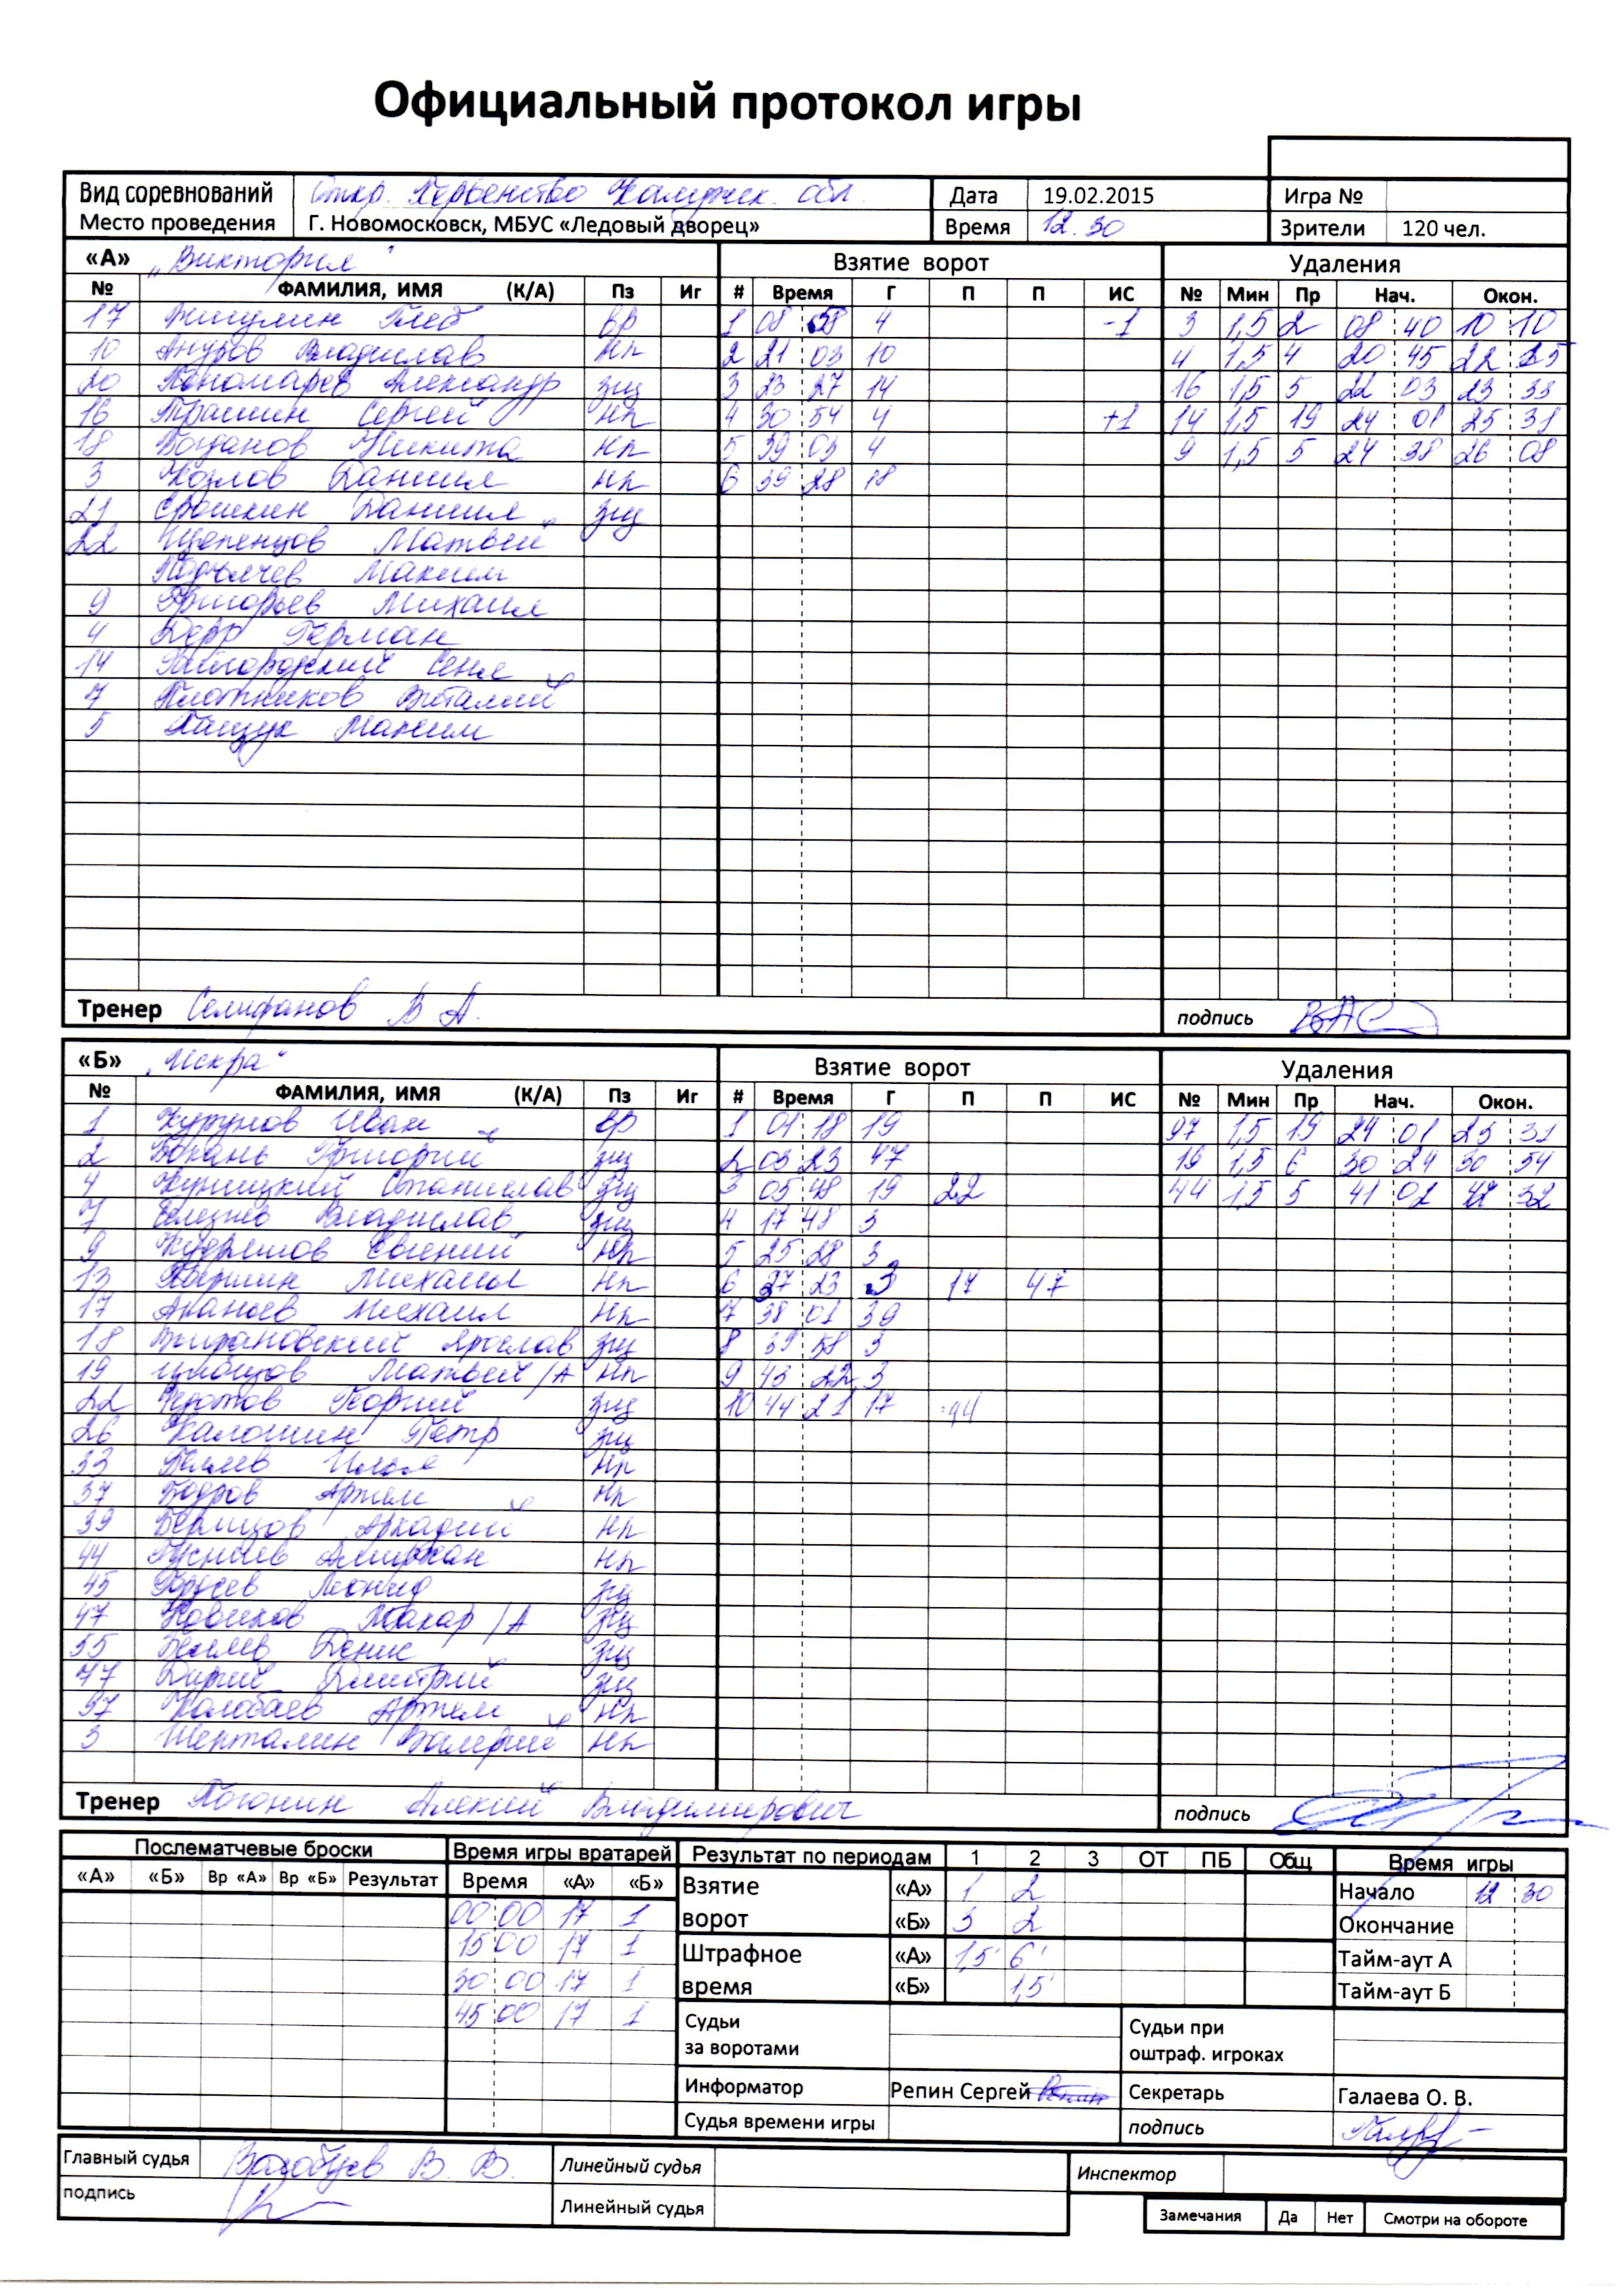 Официальный протокол игры
Вид соревнований Откр. Первенство Калужск. обл. Дата 19.02.2015 Игра №
Место проведения Г. Новомосковск, МБУС «Ледовый дворец» Время 12.30 Зрители 120 чел.
«А» „Виктория" Взятие ворот Удаления
№ ФАМИЛИЯ, ИМЯ (К/А) Пз Иг # Время Г П П ИС № Мин Пр Нач. Окон.
17 Глеб вр 1 08 58 4 -1 3 1,5 2 08 40 10 10
10 Ануров Владислав нп 2 21 03 10 4 1,5 4 20 45 22 25
20 Пономарев Александр зщ 3 23 27 14 16 1,5 5 22 03 23 33
16 Трашин Сергей нп 4 30 54 4 +1 14 1,5 19 24 01 25 31
18 Богданов Никита нп 5 39 03 4 9 1,5 5 24 38 26 08
3 Козлов Даниил нп 6 39 28 18
21 Ерошкин Даниил зщ
22 Щепенцов Матвей
Подъячев Максим
9 Григорьев Михаил
4 Дерр Герман
14 Райгородский Сеня
7 Плотников Виталий
5 Пащук Максим
Тренер Селифанов В А. подпись
«Б» „Искра" Взятие ворот Удаления
№ ФАМИЛИЯ, ИМЯ (К/А) Пз Иг # Время Г П П ИС № Мин Пр Нач. Окон.
1 Курунов Иван вр 1 01 18 19 97 1,5 19 24 01 25 31
2 Григорий зщ 2 03 23 47 19 1,5 6 30 24 30 54
4 Куницкий Станислав зщ 3 05 48 19 22 44 1,5 5 41 02 42 32
7 Владислав зщ 4 17 48 3
9 Кудряшов Евгений нп 5 25 28 3
13 Паршин Михаил нп 6 37 23 3 17 47
17 Ананьев Михаил нп 7 38 01 39
18 Ярослав зщ 8 39 58 3
19 Матвей /А нп 9 43 22 3
22 Кротов Георгий зщ 10 44 21 17 44
26 Калошин Петр зщ
33 Беляев Илья нп
37 Бодров Артем нп
39 Аркадий нп
44 Амирхан нп
45 Леонид зщ
47 Новиков Макар /А зщ
55 Беляев Денис зщ
77 Дмитрий зщ
97 Колбаев Артем нп
3 Шерталин Валерий нп
Тренер Погонин Алексей Владимирович подпись
Послематчевые броски Время игры вратарей Результат по периодам 1 2 3 ОТ ПБ Общ Время игры
«А» «Б» Вр «А» Вр «Б» Результат Время «А» «Б» Взятие ворот «А» 1 2 Начало 12 30
00 00 17 1 «Б» 3 2 Окончание
15 00 17 1 Штрафное время «А» 1,5' 6' Тайм-аут А
30 00 17 1 «Б» 1,5' Тайм-аут Б
45 00 17 1 Судьи за воротами Судьи при оштраф. игроках
Информатор Репин Сергей Секретарь Галаева О. В.
Судья времени игры подпись
Главный судья В. В. Линейный судья Инспектор
подпись Линейный судья
Замечания Да Нет Смотри на обороте